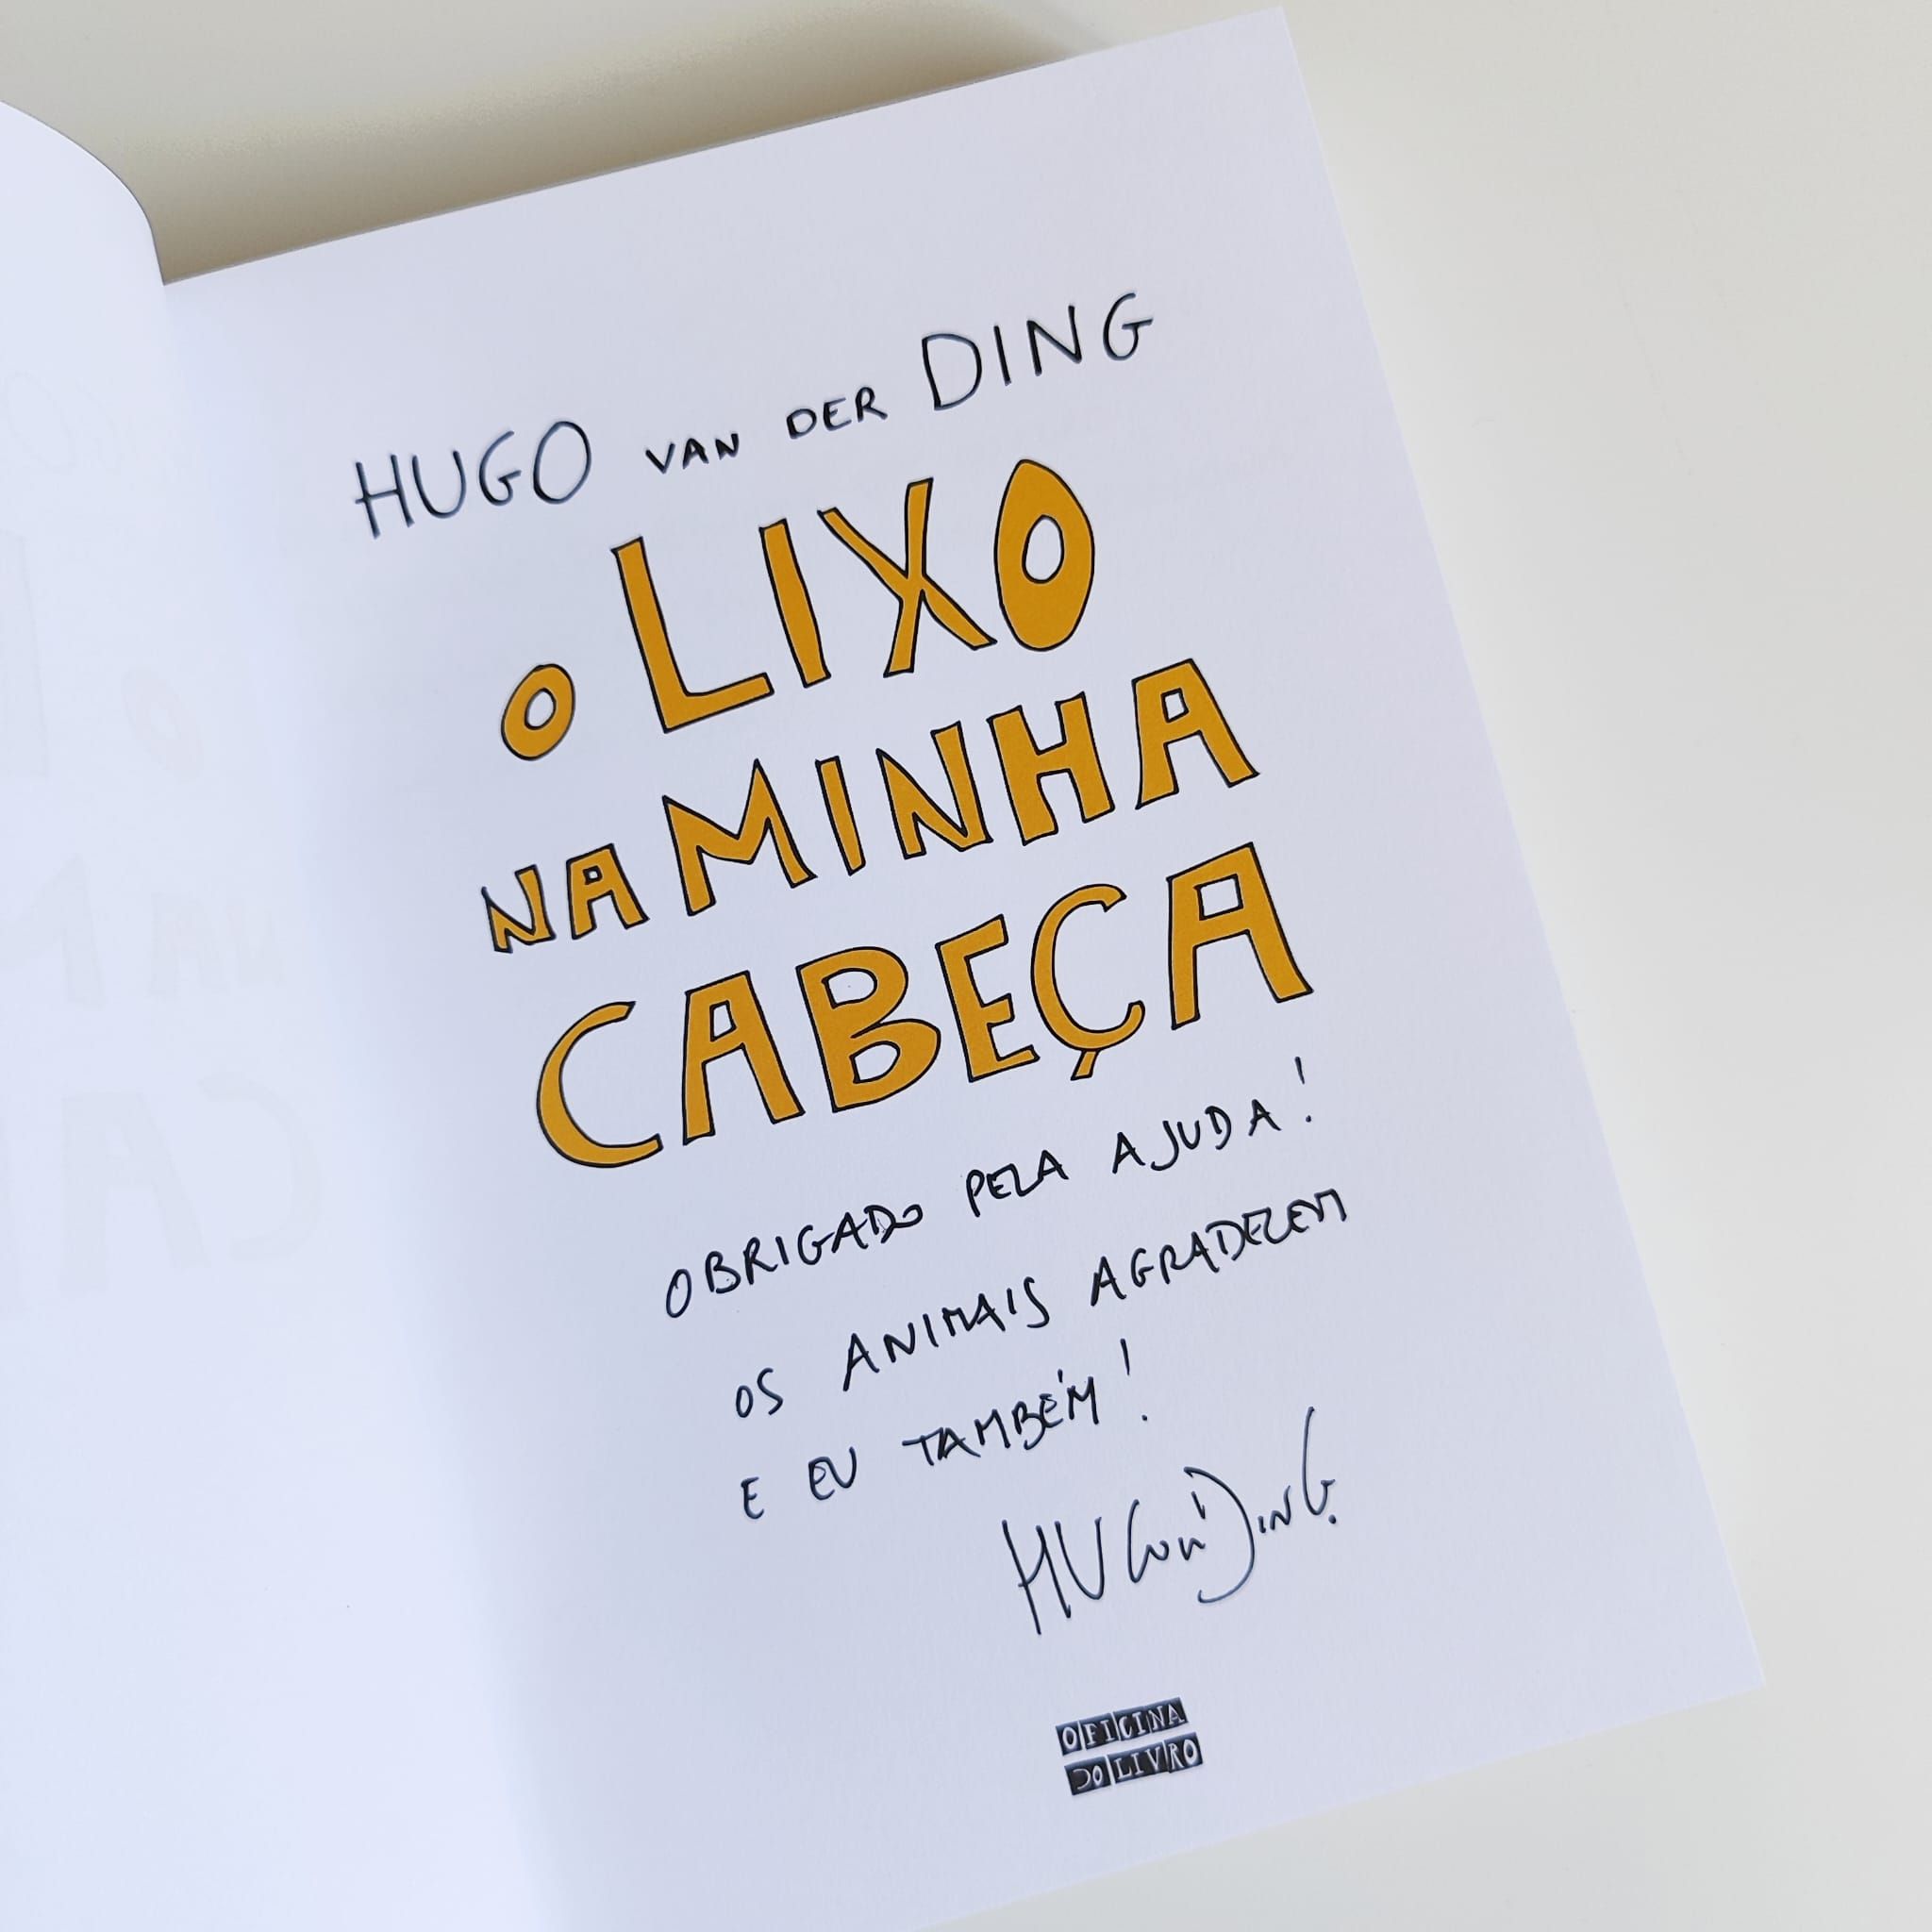 HUGO VAN DER DING
O LIXO
NA MINHA
CABEÇA
OBRIGADO PELA AJUDA!
OS ANIMAIS AGRADECEM
E EU TAMBÉM!
OFICINA
DO LIVRO